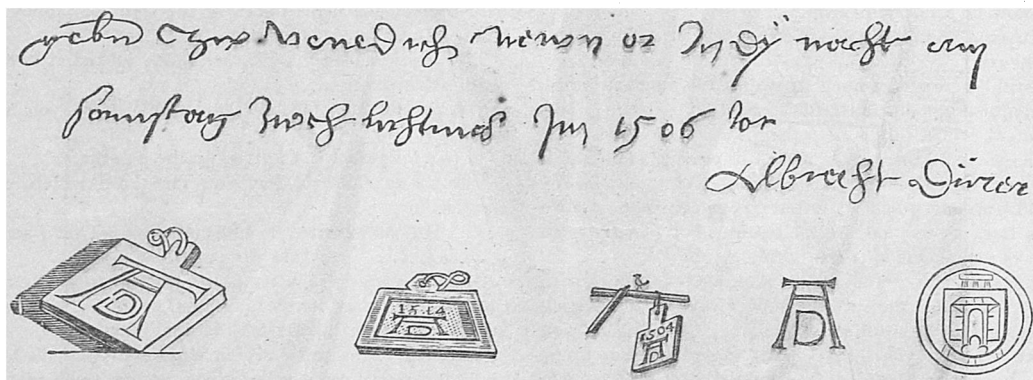 gebn czw Venedich newn or In dÿ nacht am
samstag Noch lichtmes Im 1506 Jor
Albrecht Dürer
AD
1514
AD
1504
AD
AD